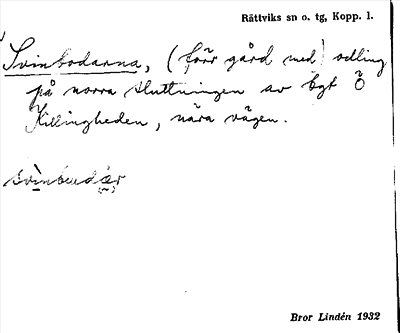 Rättviks sn o. tg, Kopp. l.
Svinbodarna, (förr gård med) odling
på norra sluttningen av bgt Ö
Killingheden, nära vägen.
svìnbudär
Bror Lindén 1932